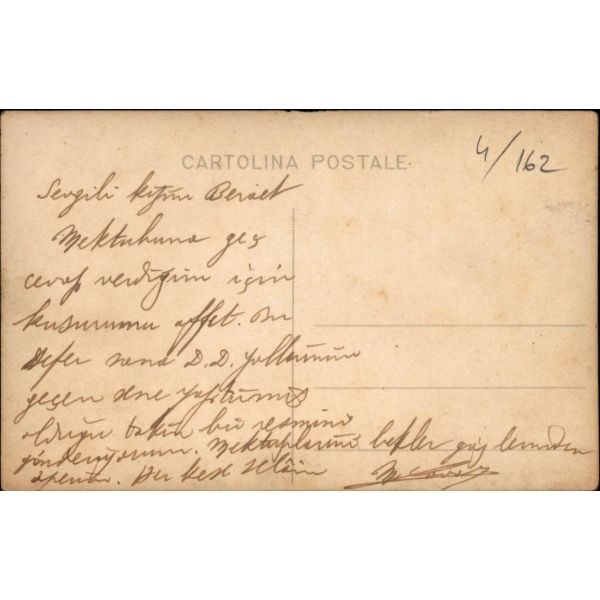 4/162
CARTOLINA POSTALE
Sevgili kızım Beraet
Mektubuna geç
cevap verdiğim için
kusurumu affet. Bu
defer sana D.D. yollarının
geçen sene yaptırmış
olduğu bu resmini
gönderiyorum. Mektuplarını bekler gözlerinden
öperim. Herkese selâm